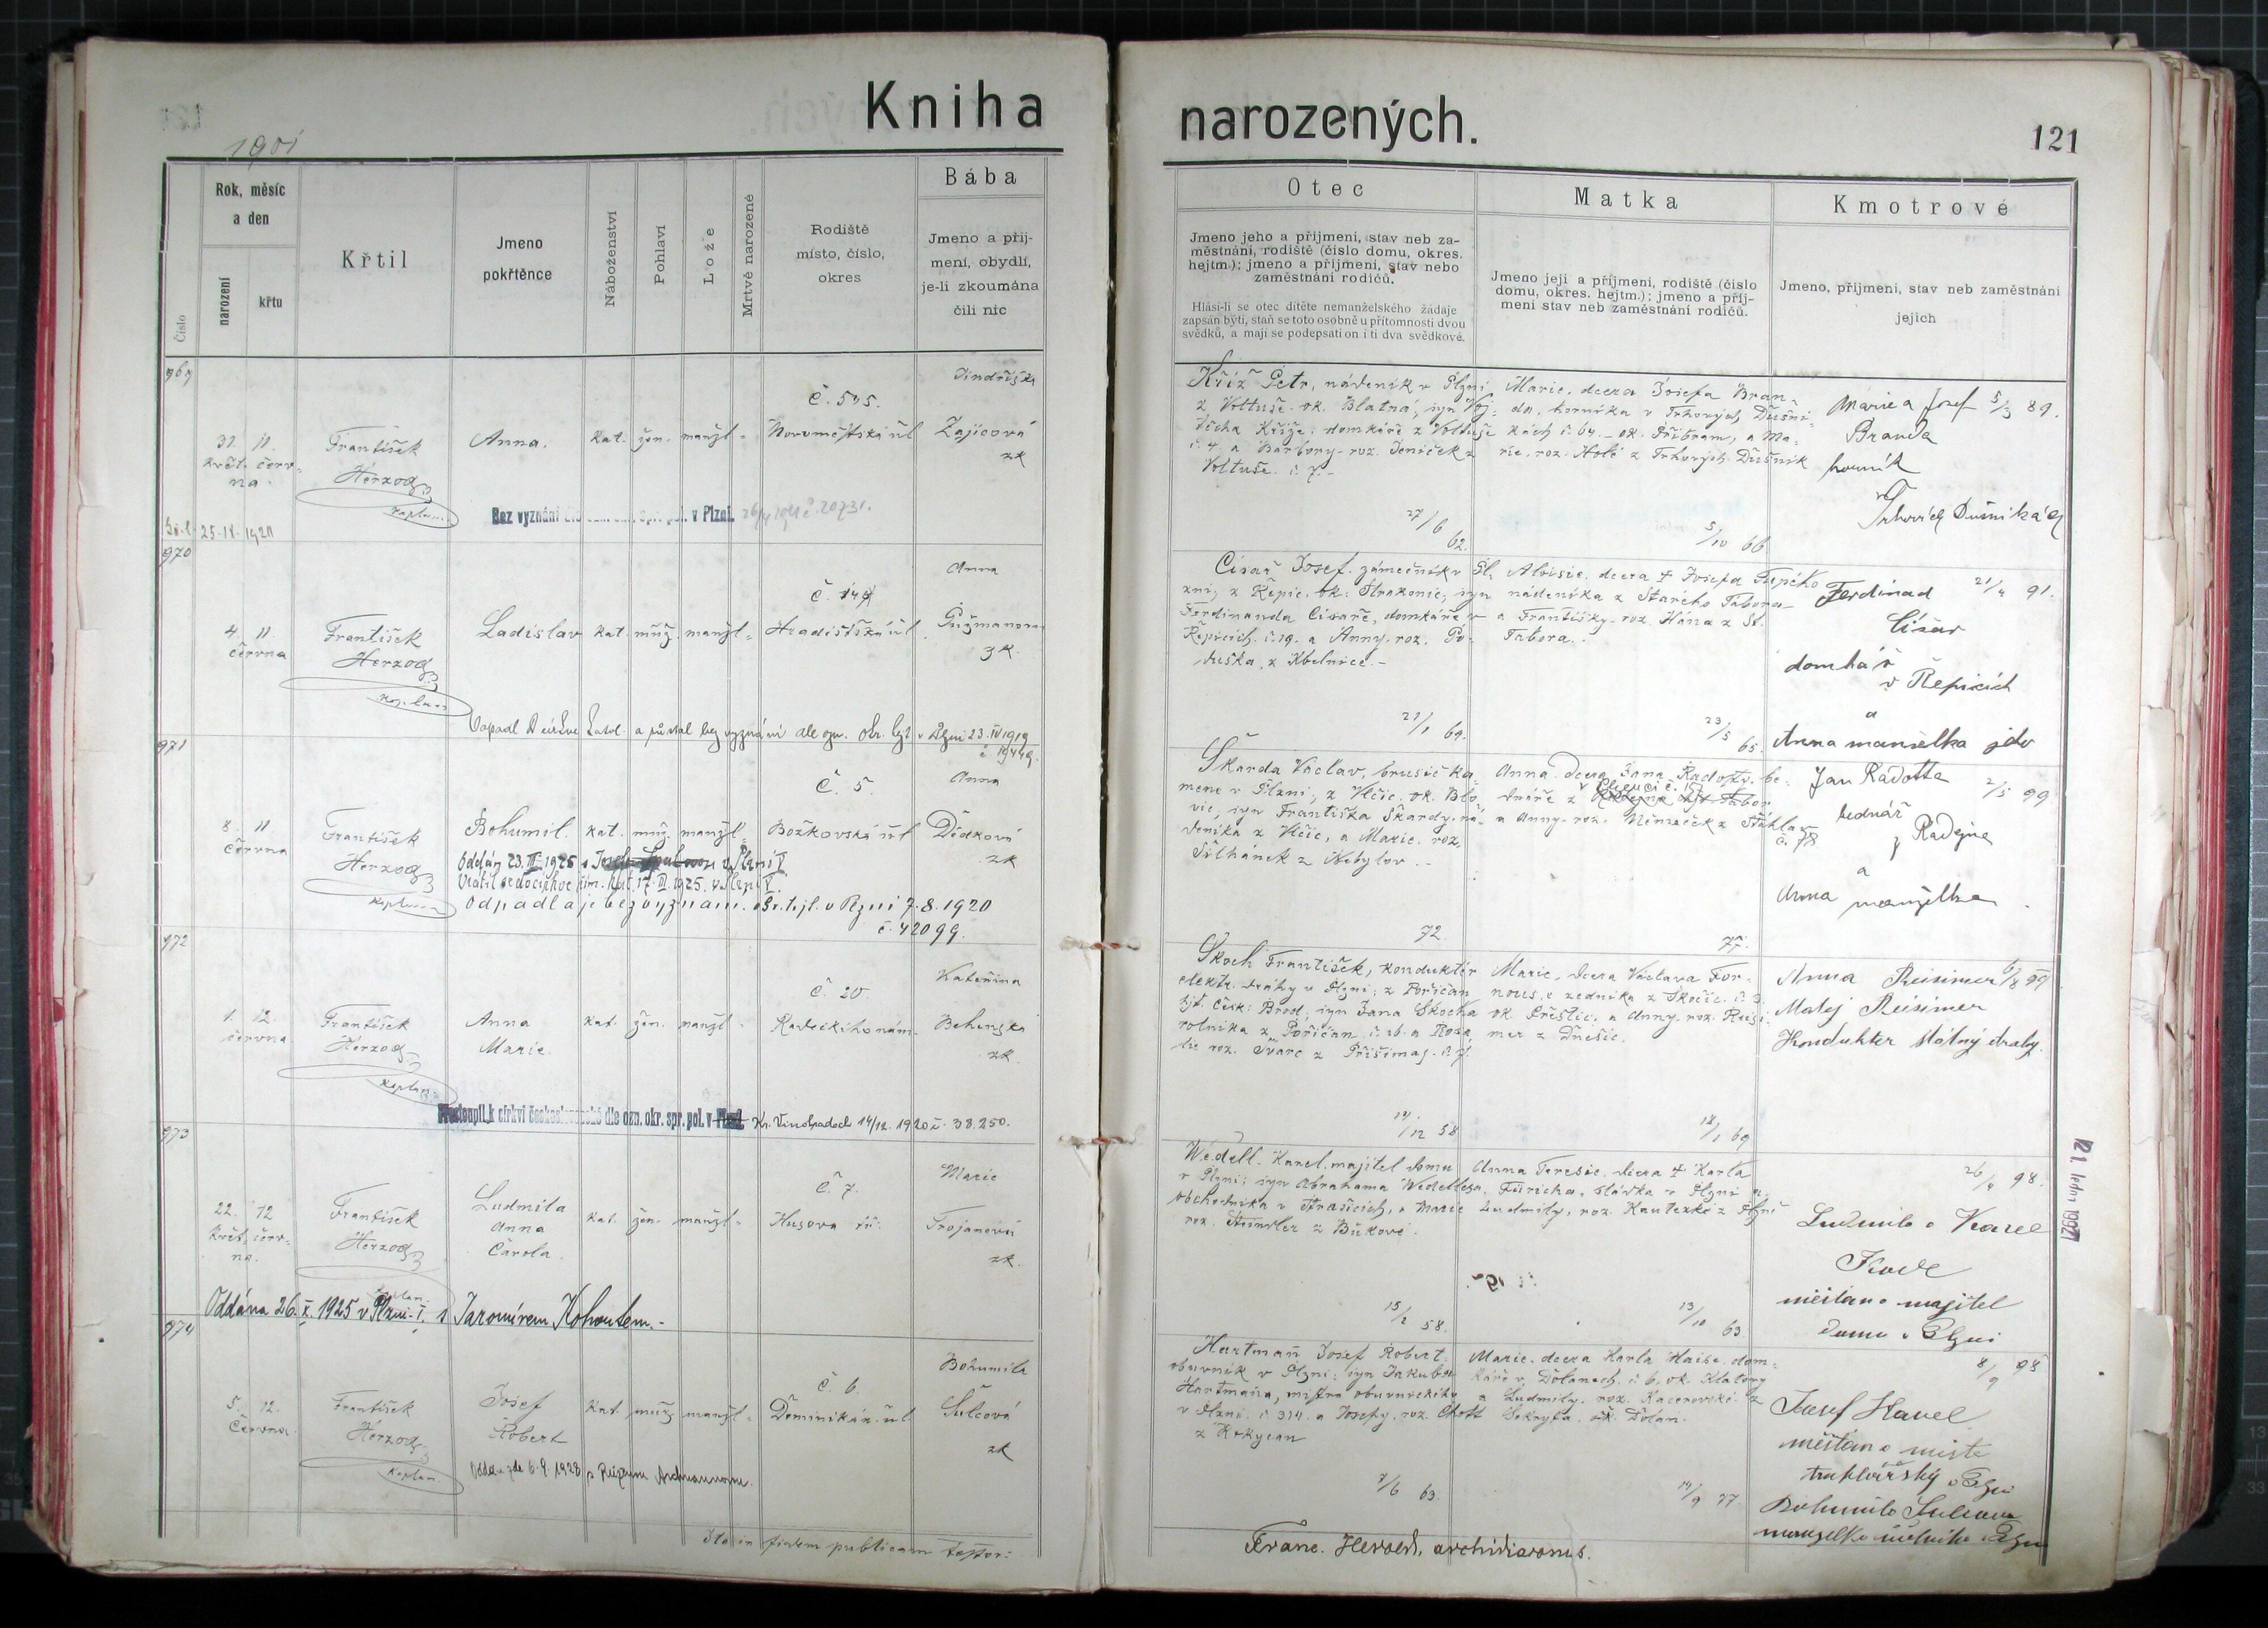 Kniha
narozených.
121
1901
Číslo
Rok, měsíc
a den
narození
křtu
Křtil
Jmeno
pokřtěnce
Náboženství
Pohlaví
Lože
Mrtvě narozené
Rodiště
místo, číslo,
okres
Bába
Jmeno a příj-
mení, obydlí,
je-li zkoumána
čili nic
Otec
Jmeno jeho a příjmení, stav neb za-
městnání, rodiště (číslo domu, okres.
hejtm.); jmeno a příjmení, stav nebo
zaměstnání rodičů.
Hlásí-li se otec dítěte nemanželského žádaje
zapsán býti, staň se toto osobně u přítomnosti dvou
svědků, a mají se podepsati on i ti dva svědkové.
Matka
Jmeno její a příjmení, rodiště (číslo
domu, okres. hejtm.); jmeno a příj-
mení stav neb zaměstnání rodičů.
Kmotrové
Jmeno, příjmení, stav neb zaměstnání
jejich
969
31. 11.
Květ. červ-
na.
František
Herzog
kaplan
Anna.
kat. žen. manžl.
č. 505.
Novoměstská ul
Jindřiška
Zajícová
zk
Bez vyznání
v Plzni.
25.IX.1920
Kříž Petr, nádeník v Plzni
z Voltuše ok. Blatná, syn Voj-
těcha Kříže, domkáře z Voltuše
č. 4. a Barbory roz. Jeníček z
Voltuše č. 7.-
27/6 62.
Marie, dcera Josefa Bran-
da, horníka v Trhových Dušní-
kách č. 64. ok. Příbram, a Ma-
rie, roz. Holé z Trhových Dušník
5/10 66
Marie a Josef 5/3 89.
Branda
horník
Trhových Dušníkách
970
4. 11.
června
František
Herzog
kaplan
Ladislav
kat. muž. manžl.
Hradišťská ul
Anna
Gužmanova
zk.
a zůstal bez vyznání dle ozn. okr. hejt. v Plzni 23.IV 1919
č. 19449.
Císař Josef, zámečník v Pl-
zni, z Řepic, ok. Strakonic, syn
Ferdinanda Císaře, domkáře v
Řepicích č. 19. a Anny roz. Po-
duška z Kbelnice.-
21/1 64.
Aloisie, dcera † Josefa
nádeníka z Starého Tábora
a Františky roz. Hána z St.
Tábora.
23/5 65.
Ferdinad 21/4 91.
Císař
domkář
v Řepicích
a
Anna manželka jeho
971
8. 11
června
František
Herzog
kaplan
Bohumil.
kat. muž. manžl.
č. 5.
Božkovská ul
Anna
Dědková
zk
Oddán 23.III.1925 s
v Plzni I
Vrátil se do církve řím. kat. 17.III.1925. v Plzni I.
Odpadl a je bez vyznání. Okr. hejt. v Plzni 7.8.1920
č. 42099.
Škarda Václav, brusič ka-
mene v Plzni, z Vlčic, ok. Blo-
vic, syn Františka Škardy, ná-
deníka z Vlčic, a Marie, roz.
Šilhánek z Nebylov.-
72.
Anna, dcera Jana Radosty, be-
dnáře z
a Anny roz. Němeček z Štáhlav
č. 78
77.
Jan Radosta 2/5 99
bednář
z Radejna
a
Anna manželka
972
1. 12.
června
František
Herzog
kaplan
Anna
Marie
kat. žen. manžl.
č. 20.
Radeckého nám.
Kateřina
Behenská
zk.
Přestoupil k církvi československé dle ozn. okr. spr. pol. v Plzni Kr. Vinohradech 14/12. 1920 č. 38.250.
Škoch František, konduktér
elektr. dráhy v Plzni, z Poříčan
hjt. Česk. Brod, syn Jana Škocha
rolníka z Poříčan č. 26. a Rosa-
lie roz. Švarc z Přišimas č. 7.
14/12 58
Marie, dcera Václava For-
nous, zedníka z Skočic č. 3
ok. Přeštic, a Anny roz. Reisi-
mer z Dnešic.
18/1 69
Anna Reisimer 6/8 99
Matej Reisimer
Konduktér státný dráhy.
973
22. 12
Květ. červ-
na.
František
Herzog
kaplan
Ludmila
Anna
Carola
kat. žen. manžl.
č. 7.
Husova tř.
Marie
Trojanová
zk.
Oddána 26.X.1925 v Plzni-I. s Jaromírem Kohoutem.-
Wedell Karel, majitel domu
v Plzni, syn Abrahama Wedellesa,
obchodníka v Strašicích, a Marie
roz. Steindler z Bukové.
15/2 58.
Anna Teresie, dcera † Karla
Füricha, sládka v Plzni a
Ludmily, roz. Kautezké z Plzně
13/10 63
26/4 98.
Ludmila a Karel
měšťan a majitel
domu v Plzni
21. ledna 1992
974
5. 12.
Června.
František
Herzog
kaplan.
Josef
Robert
kat. muž. manžl.
č. 6.
Dominikán. ul
Bohumila
Šulcová
zk
Oddán zde 6.9.1928
Hartman Josef Robert,
obuvník v Plzni, syn Jakuba
Hartmana, mistra obuvnického
v Plzni č. 314. a Josefy, roz. Chott
z Rokycan
7/6 63.
Marie, dcera Karla Haise, dom-
káře v Dolanech č. 6. ok. Klatovy
a Ludmily, roz. Kacerovské z
Sekryta, ok. Dolan.
14/9 77
8/9 98
Josef Havel
měšťan a mistr
truhlářský v Plzni
Bohumila Šulcova
manželka úředníka v Plzni
Ita in fidem publicam testor:
Franc. Herold, archidiaconus.